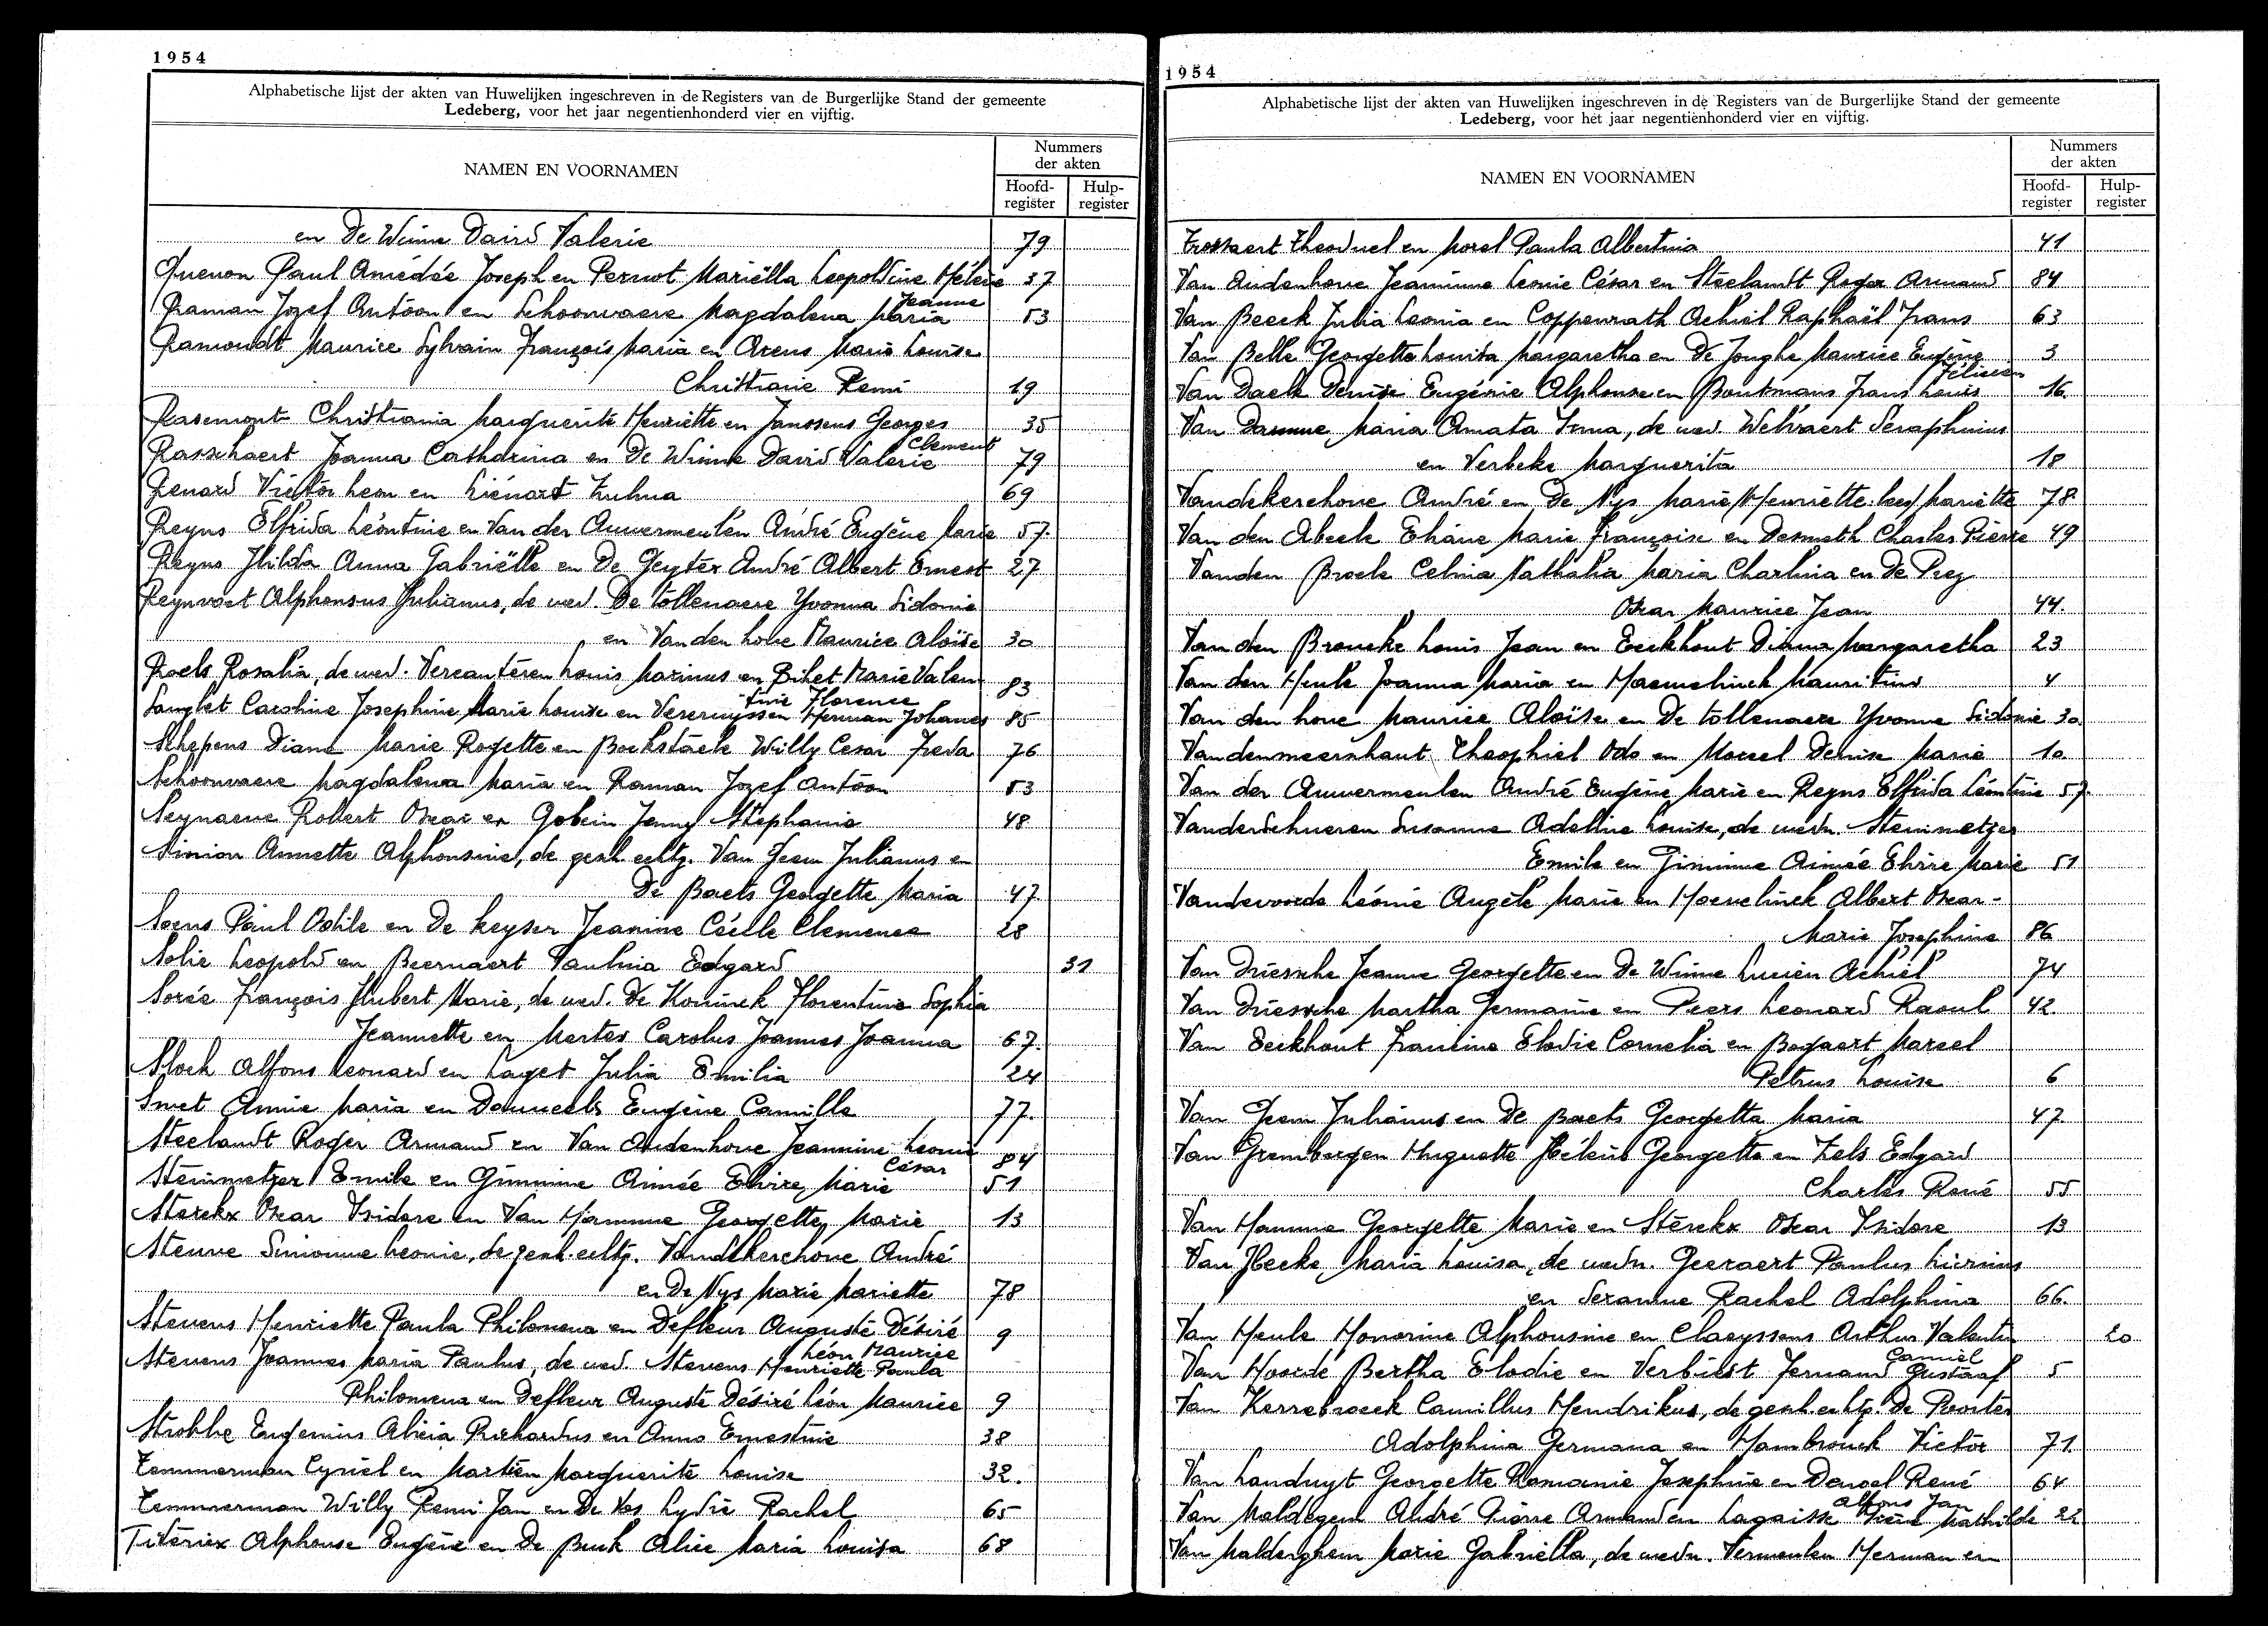 1954
Alphabetische lijst der akten van Huwelijken ingeschreven in de Registers van de Burgerlijke Stand der gemeente
Ledeberg, voor het jaar negentienhonderd vier en vijftig.
NAMEN EN VOORNAMEN
Nummers
der akten
Hoofd-
register
Hulp-
register
en De Winne David Valerie 79
Quenon Paul Amédée Joseph en Pernot Mariëlla Leopoldine Hélène 37
Raman Jozef Antoon en Schoonvaere Magdalena Maria Jeanne 53
Ramondt Maurice Sylvain François Maria en Arens Maria Louise
Christiane Remi 19
Rasemont Christiania Marguerite Henriette en Janssens Georges 35
Rasschaert Joanna Catharina en De Winne David Valerie Clement 79
Renard Victor Leon en Liénart Zulma 69
Reyns Elfrida Léontine en Van der Auwermeulen André Eugène Marie 57.
Reyns Hilda Anna Gabriëlle en De Geyter André Albert Ernest 27
Reynvoet Alphonsus Julianus, de wed. De tollenaere Yvonna Sidonie
en Van den hove Maurice Aloïse 30
Roels Rosalia, de wed. Vercauteren Louis Marinus en Bihet Marie Valen
tine Florence 83
Sanglet Caroline Josephine Marie Louise en Vereruyssen Herman Johannes 85
Schepens Diane Marie Rogette en Bockstaele Willy Cesar Freda 76
Schoonvaere Magdalena Maria en Raman Jozef Antoon 53
Seynaeve Robert Oscar en Gobein Jenny Stephanie 48
Simion Annette Alphonsine, de gesch. echtg. Van Geem Julianus en
De Baets Georgette Maria 47
Soens Paul Odile en De keyser Jeanine Cécile Clemence 28
Solie Leopold en Beernaert Paulina Edgard 31
Sorée François Hubert Marie, de wed. De Koninck Florentine Sophia
Jeannette en Mertes Carolus Joannes Joanna 67.
Slock Alfons Leonard en Laget Julia Emilia 24
Smet Annie Maria en Dauweels Eugène Camille 77.
Steelandt Roger Armand en Van Audenhove Jeannine Leonie
César 84
Steinmetzer Emile en Gimmine Aimée Elvire Marie 51
Sterckx Oscar Isidore en Van Hamme Georgette Marie 13
Steuve Simonne Leonie, de gesch. echtg. Vandekerchove André
en De Nys Marie Mariette 78
Stevens Henriette Paula Philomena en Defleur Auguste Désiré
Léon Maurice 9
Stevens Joannes Maria Paulus, de wed. Stevens Henriette Paula
Philomena en Defleur Auguste Désiré Léon Maurice 9
Strobbe Eugenius Alicia Richardus en Anno Ernestine 38
Temmerman Cyriel en Martien Marguerite Louise 32.
Temmerman Willy Remi Jan en De Vos Lydie Rachel 65
Titeriex Alphonse Eugène en De Buck Alice Maria Louisa 68
1954
Alphabetische lijst der akten van Huwelijken ingeschreven in de Registers van de Burgerlijke Stand der gemeente
Ledeberg, voor het jaar negentienhonderd vier en vijftig.
NAMEN EN VOORNAMEN
Nummers
der akten
Hoofd-
register
Hulp-
register
Trossaert Theoduel en Morel Paula Albertina 41
Van Audenhove Jeannine Leonie César en Steelandt Roger Armand 84
Van Beeck Julia Leonia en Coppenrath Achiel Raphaël Frans 63
Van Belle Georgette Louisa Margaretha en De Jonghe Maurice Eugène 3
Van Daele Denise Eugénie Alphonse en Boutmans Frans Louis Félicien 16.
Van Damme Maria Amata Irma, de wed. Welvaert Seraphinus
en Verbeke Marguerita 18
Vandekerchove André en De Nys Marie/Henriette: lees/Mariette 78.
Van den Abeele Eliane Marie Françoise en Desmeth Charles Pierre 49
Vanden Broele Celina Nathalia Maria Charlina en De Prez
Oscar Maurice Jean 44.
Van den Broucke Louis Jean en Eeckhout Diana Margaretha 23
Van den Heule Joanna Maria en Haemelinck Mauritius 4
Van den hove Maurice Aloïse en De tollenaere Yvonne Sidonie 30.
Vandenmeersschaut Theophiel Odo en Morcel Denise Marie 10.
Van der Auwermeulen André Eugène Marie en Reyns Elfrida Léontine 57.
Vanderschueren Susanne Adeline Louise, de wedn. Steinmetzer
Emile en Gimmine Aimée Elvire Marie 51
Vandevoorde Léonie Angèle Marie en Haemelinck Albert Oscar-
Marie Josephine 86
Van Driessche Jeanne Georgette en De Winne Lucien Achiel 74
Van Driessche Martha Germaine en Peers Leonard Raoul 42
Van Eeckhout Francine Elodie Cornelia en Bogaert Marcel
Petrus Louise 6
Van Geem Julianus en De Baets Georgetta Maria 47.
Van Grembergen Huguette Hélène Georgette en Zels Edgard
Charles René 55
Van Hamme Georgette Marie en Sterckx Oscar Isidore 13
Van Hecke Maria Louisa, de wedn. Geeraert Paulus Livinus
en Seranne Rachel Adolphina 66.
Van Heule Honorine Alphonsine en Claeyssens Arthur Valentin 20
Van Hoorde Bertha Elodie en Verbiest Fernand Gustaaf Camiel 5
Van Kerrebroeck Camillus Hendrikus, de gesch. echtg. De Poorter
Adolphina Germana en Hambrouck Victor 71.
Van Landuyt Georgette Romanie Josephine en Denoel René 64
Alfons Jan
Van Maldegem André Pierre Armand en Lagaisse Irène Mathilde 22
Van Malderghem Marie Gabriella, de wedn. Vermeulen Herman en